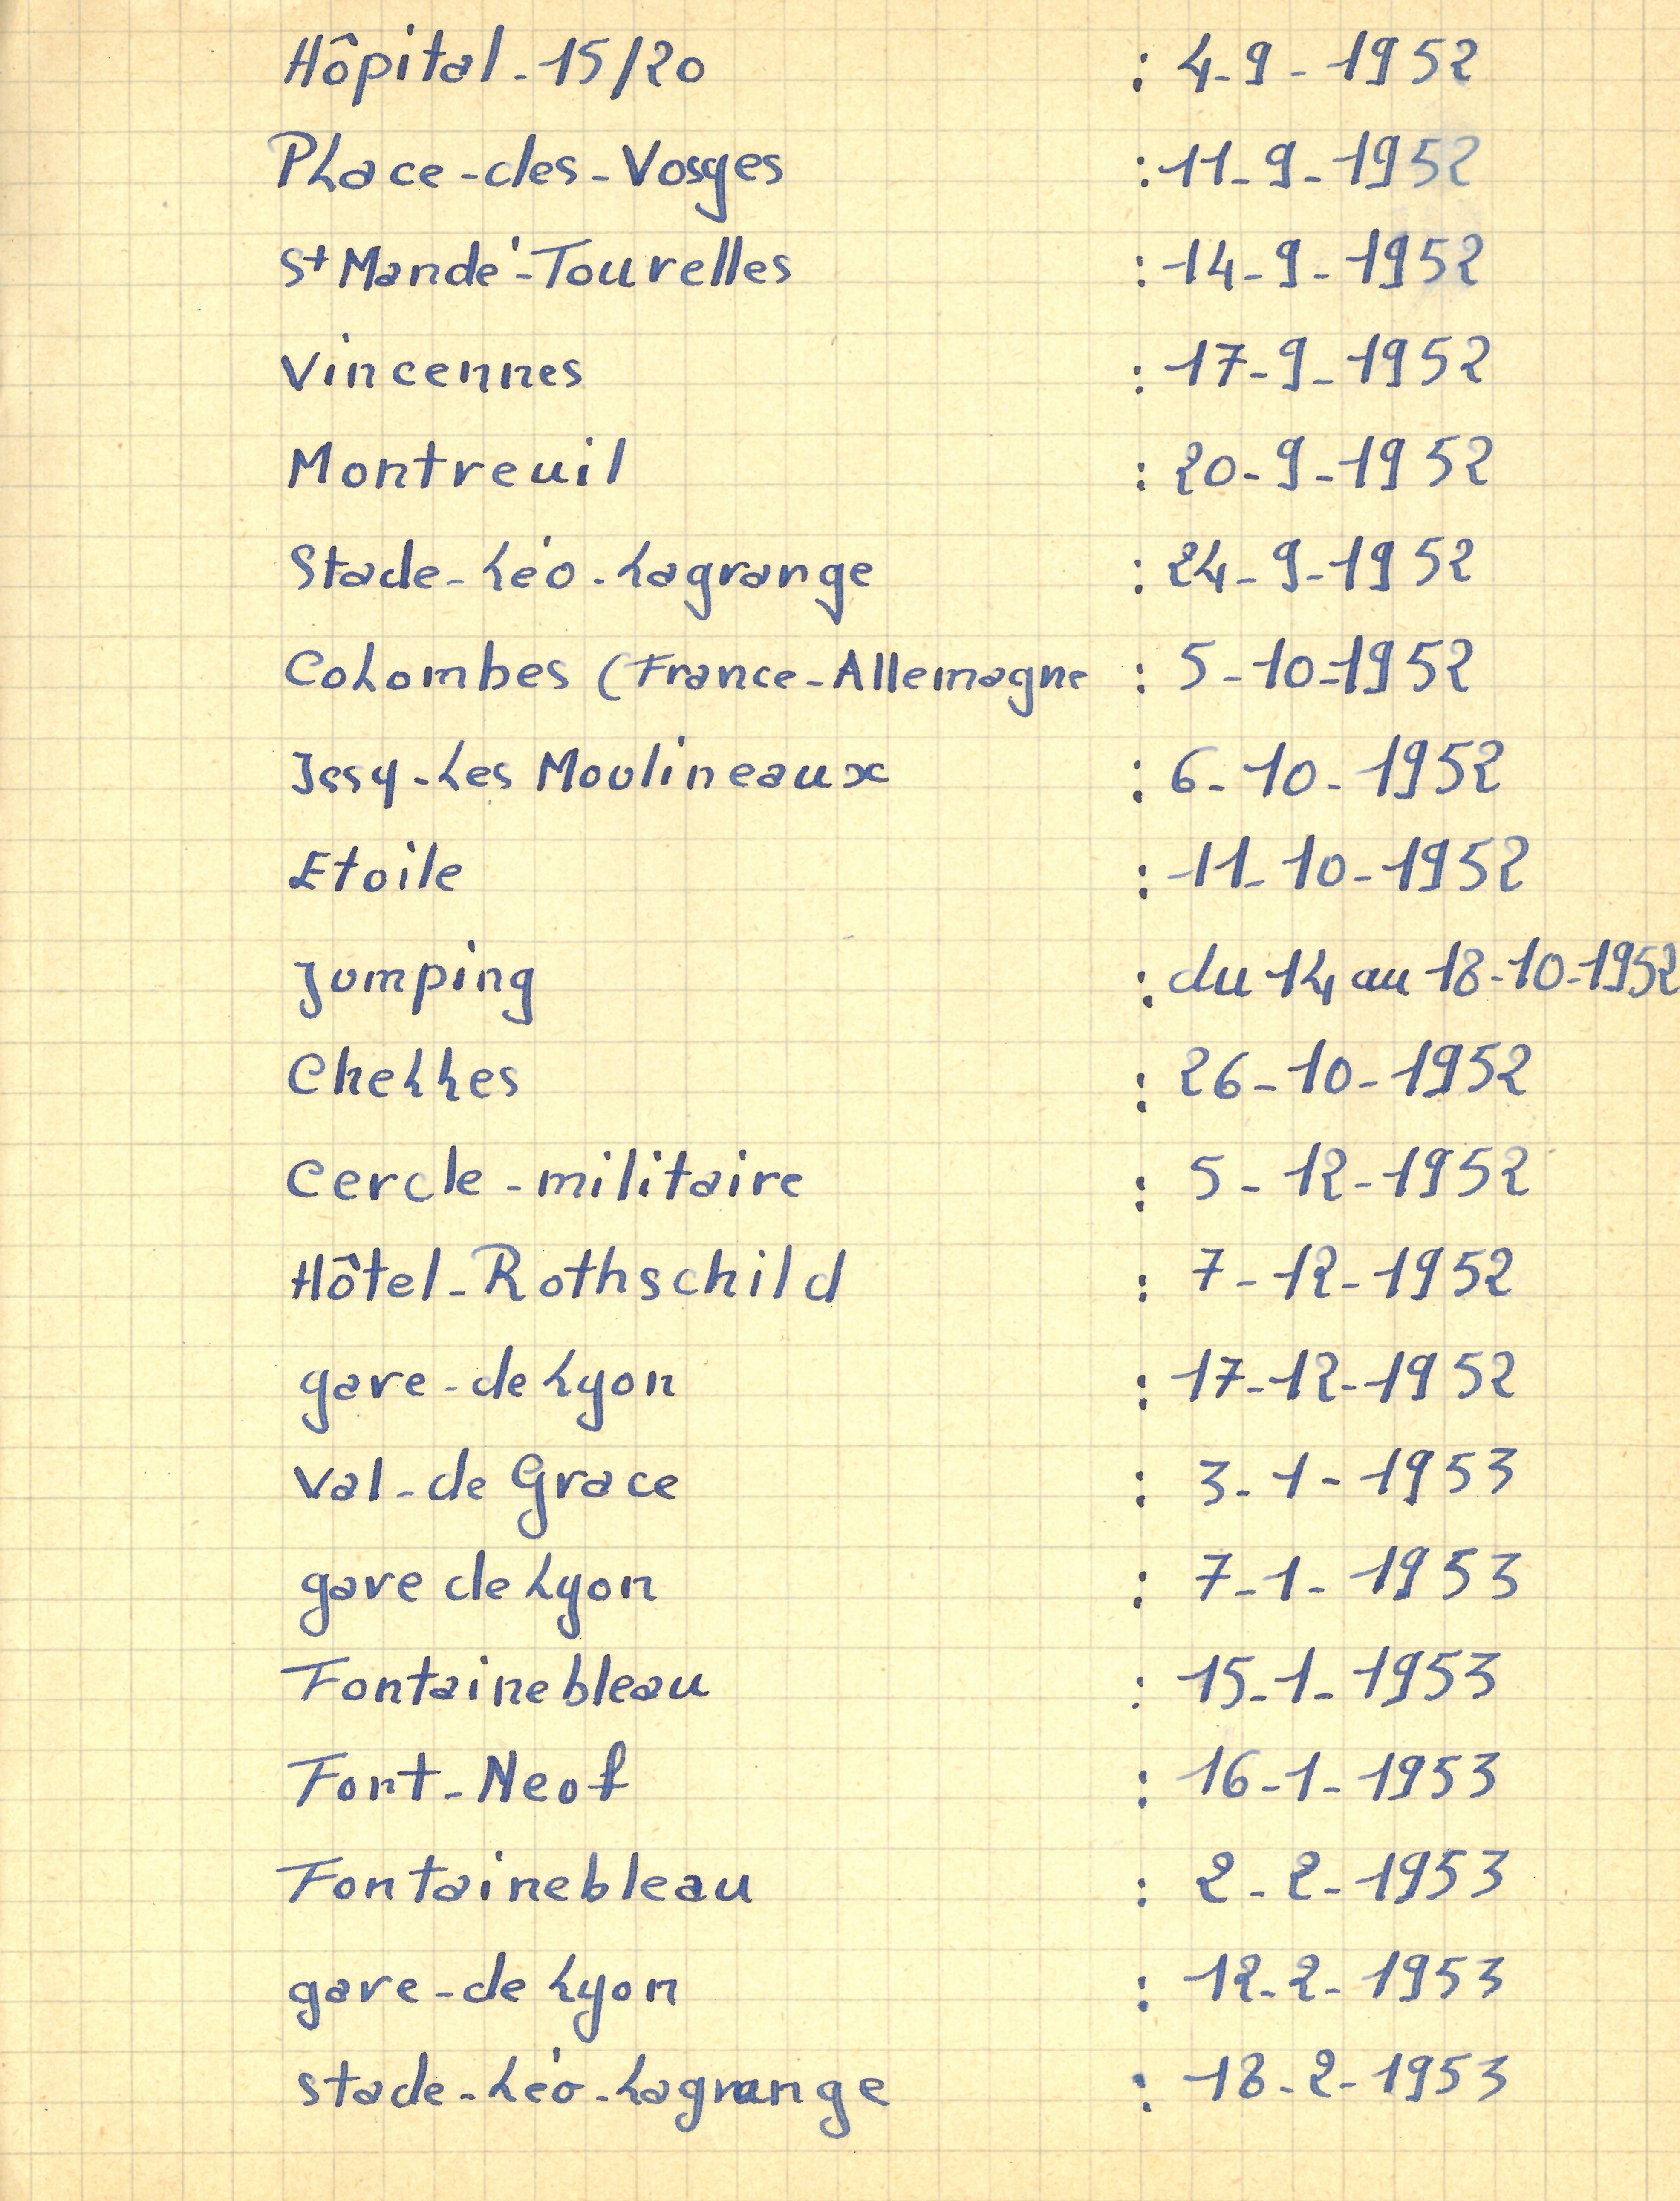 Hôpital-15/20 : 4-9-1952
Place-des-Vosges : 11-9-1952
St Mandé-Tourelles : 14-9-1952
Vincennes : 17-9-1952
Montreuil : 20-9-1952
Stade-Léo-Lagrange : 24-9-1952
Colombes (France-Allemagne : 5-10-1952
Issy-Les Moulineaux : 6-10-1952
Etoile : 11-10-1952
Jumping : du 14 au 18-10-1952
Chelles : 26-10-1952
Cercle-militaire : 5-12-1952
Hôtel-Rothschild : 7-12-1952
gare-de Lyon : 17-12-1952
Val-de Grace : 3-1-1953
gare de Lyon : 7-1-1953
Fontainebleau : 15-1-1953
Font-Neof : 16-1-1953
Fontainebleau : 2-2-1953
gare-de Lyon : 12-2-1953
stade-Léo-Lagrange : 18-2-1953